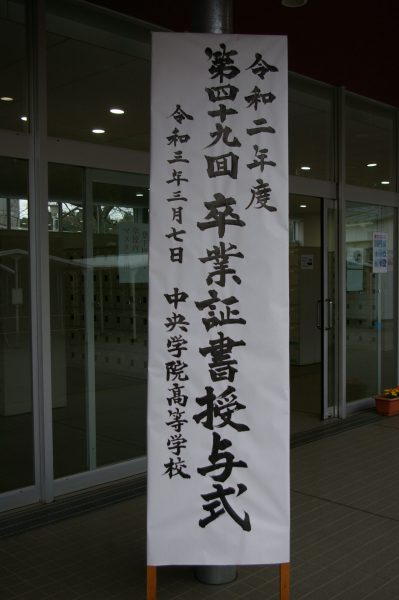 令和二年度
第四十九回 卒業証書授与式
令和三年三月七日 中央学院高等学校